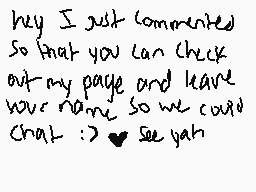 hey I just commented
so that you can check
out my page and leave
your name so we could
chat :) ♥ see yah